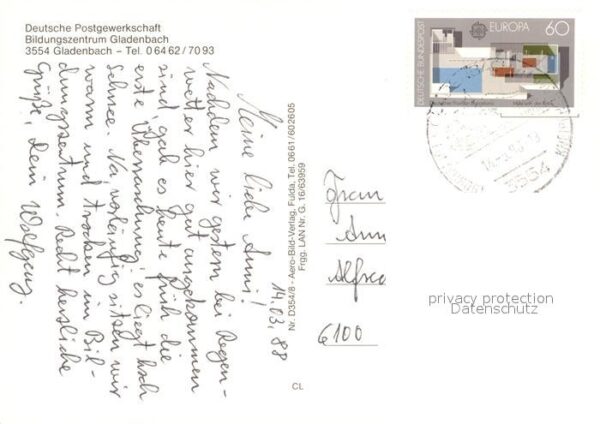 Deutsche Postgewerkschaft
Bildungszentrum Gladenbach
3554 Gladenbach – Tel. 0 64 62 / 70 93
14.03.88
Meine liebe Anni!
Nachdem wir gestern bei Regen-
wetter hier gut angekommen
sind, gab es heute früh die
erste Überraschung: es liegt hoch
Schnee. Na, vorläufig sitzen wir
warm und trocken im Bil-
dungszentrum. Recht herzliche
Grüße, Dein Wolfgang.
Nr. D354/8 - Aero-Bild-Verlag, Fulda, Tel. 0661/602605
Frgg. LAN Nr. G. 16/63959
CL
DEUTSCHE BUNDESPOST
EUROPA 60
3554
Frau
Ann
Alfred
6100
privacy protection
Datenschutz